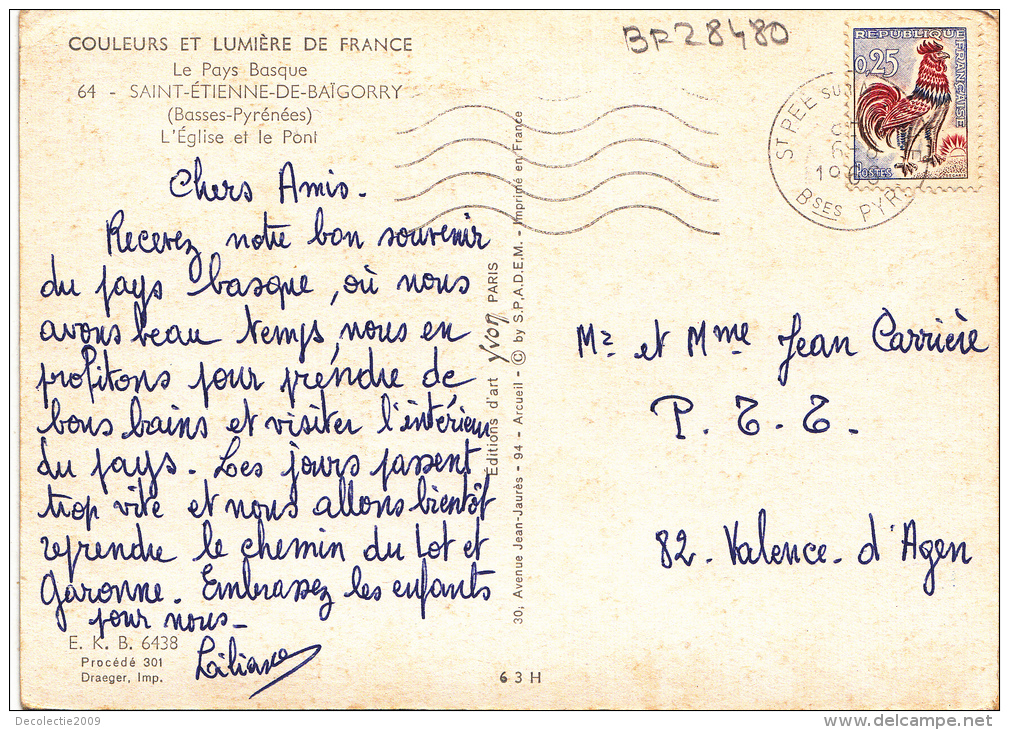 COULEURS ET LUMIÈRE DE FRANCE
Le Pays Basque
64 - SAINT-ÉTIENNE-DE-BAÏGORRY
(Basses-Pyrénées)
L'Église et le Pont
BF28480
REPUBLIQUE
FRANÇAISE
0,25
POSTES
ST PEE SUR
BSES PYR
Chers Amis -
Recevez notre bon souvenir
du pays basque, où nous
avons beau temps, nous en
profitons pour prendre de
bons bains et visiter l'intérieur
du pays. Les jours passent
trop vite et nous allons bientôt
reprendre le chemin du Lot et
Garonne. Embrassez les enfants
pour nous -
Liliane
E. K. B. 6438
Procédé 301
Draeger, Imp.
Éditions d'art Yvon PARIS
30, Avenue Jean-Jaurès - 94 - Arcueil - © by S.P.A.D.E.M. - Imprimé en France
63H
Mr et Mme Jean Carrière
P. T. T.
82 - Valence - d'Agen
Decolectie2009
delcampe.net